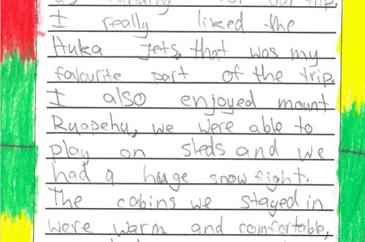 for our trip.
I really liked the
Huka Jets, that was my
favourite part of the trip.
I also enjoyed mount
Ruapehu, we were able to
play on sleds and we
had a huge snow fight.
The cabins we stayed in
were warm and comfortable,